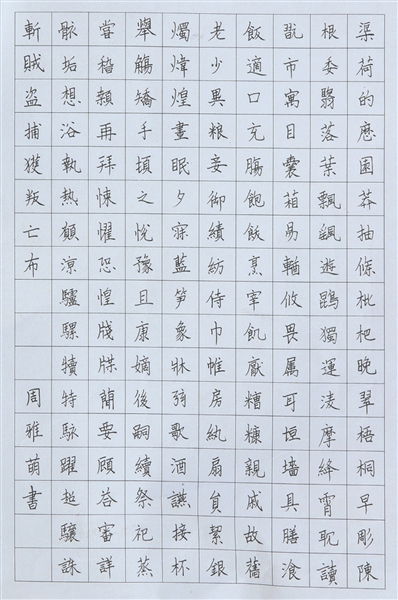 渠荷的歷園莽抽條枇杷晚翠梧桐早彫陳
根委翳落葉飄飖遊鵾獨運凌摩絳霄耽讀
翫市寓目囊箱易輶攸畏属耳垣墻具膳飡
飯適口充腸飽飫烹宰飢厭糟糠親戚故舊
老少異粮妾御績紡侍巾帷房紈扇員絜銀
燭煒煌晝眠夕寐藍笋象牀弦歌酒讌接杯
舉觴矯手頓足悅豫且康嫡後嗣續祭祀蒸
嘗稽顙再拜悚懼恐惶牋牒簡要顧答審詳
骸垢想浴執熱願涼驢騾犢特駭躍超驤誅
斬賊盜捕獲叛亡布
周雅萌書